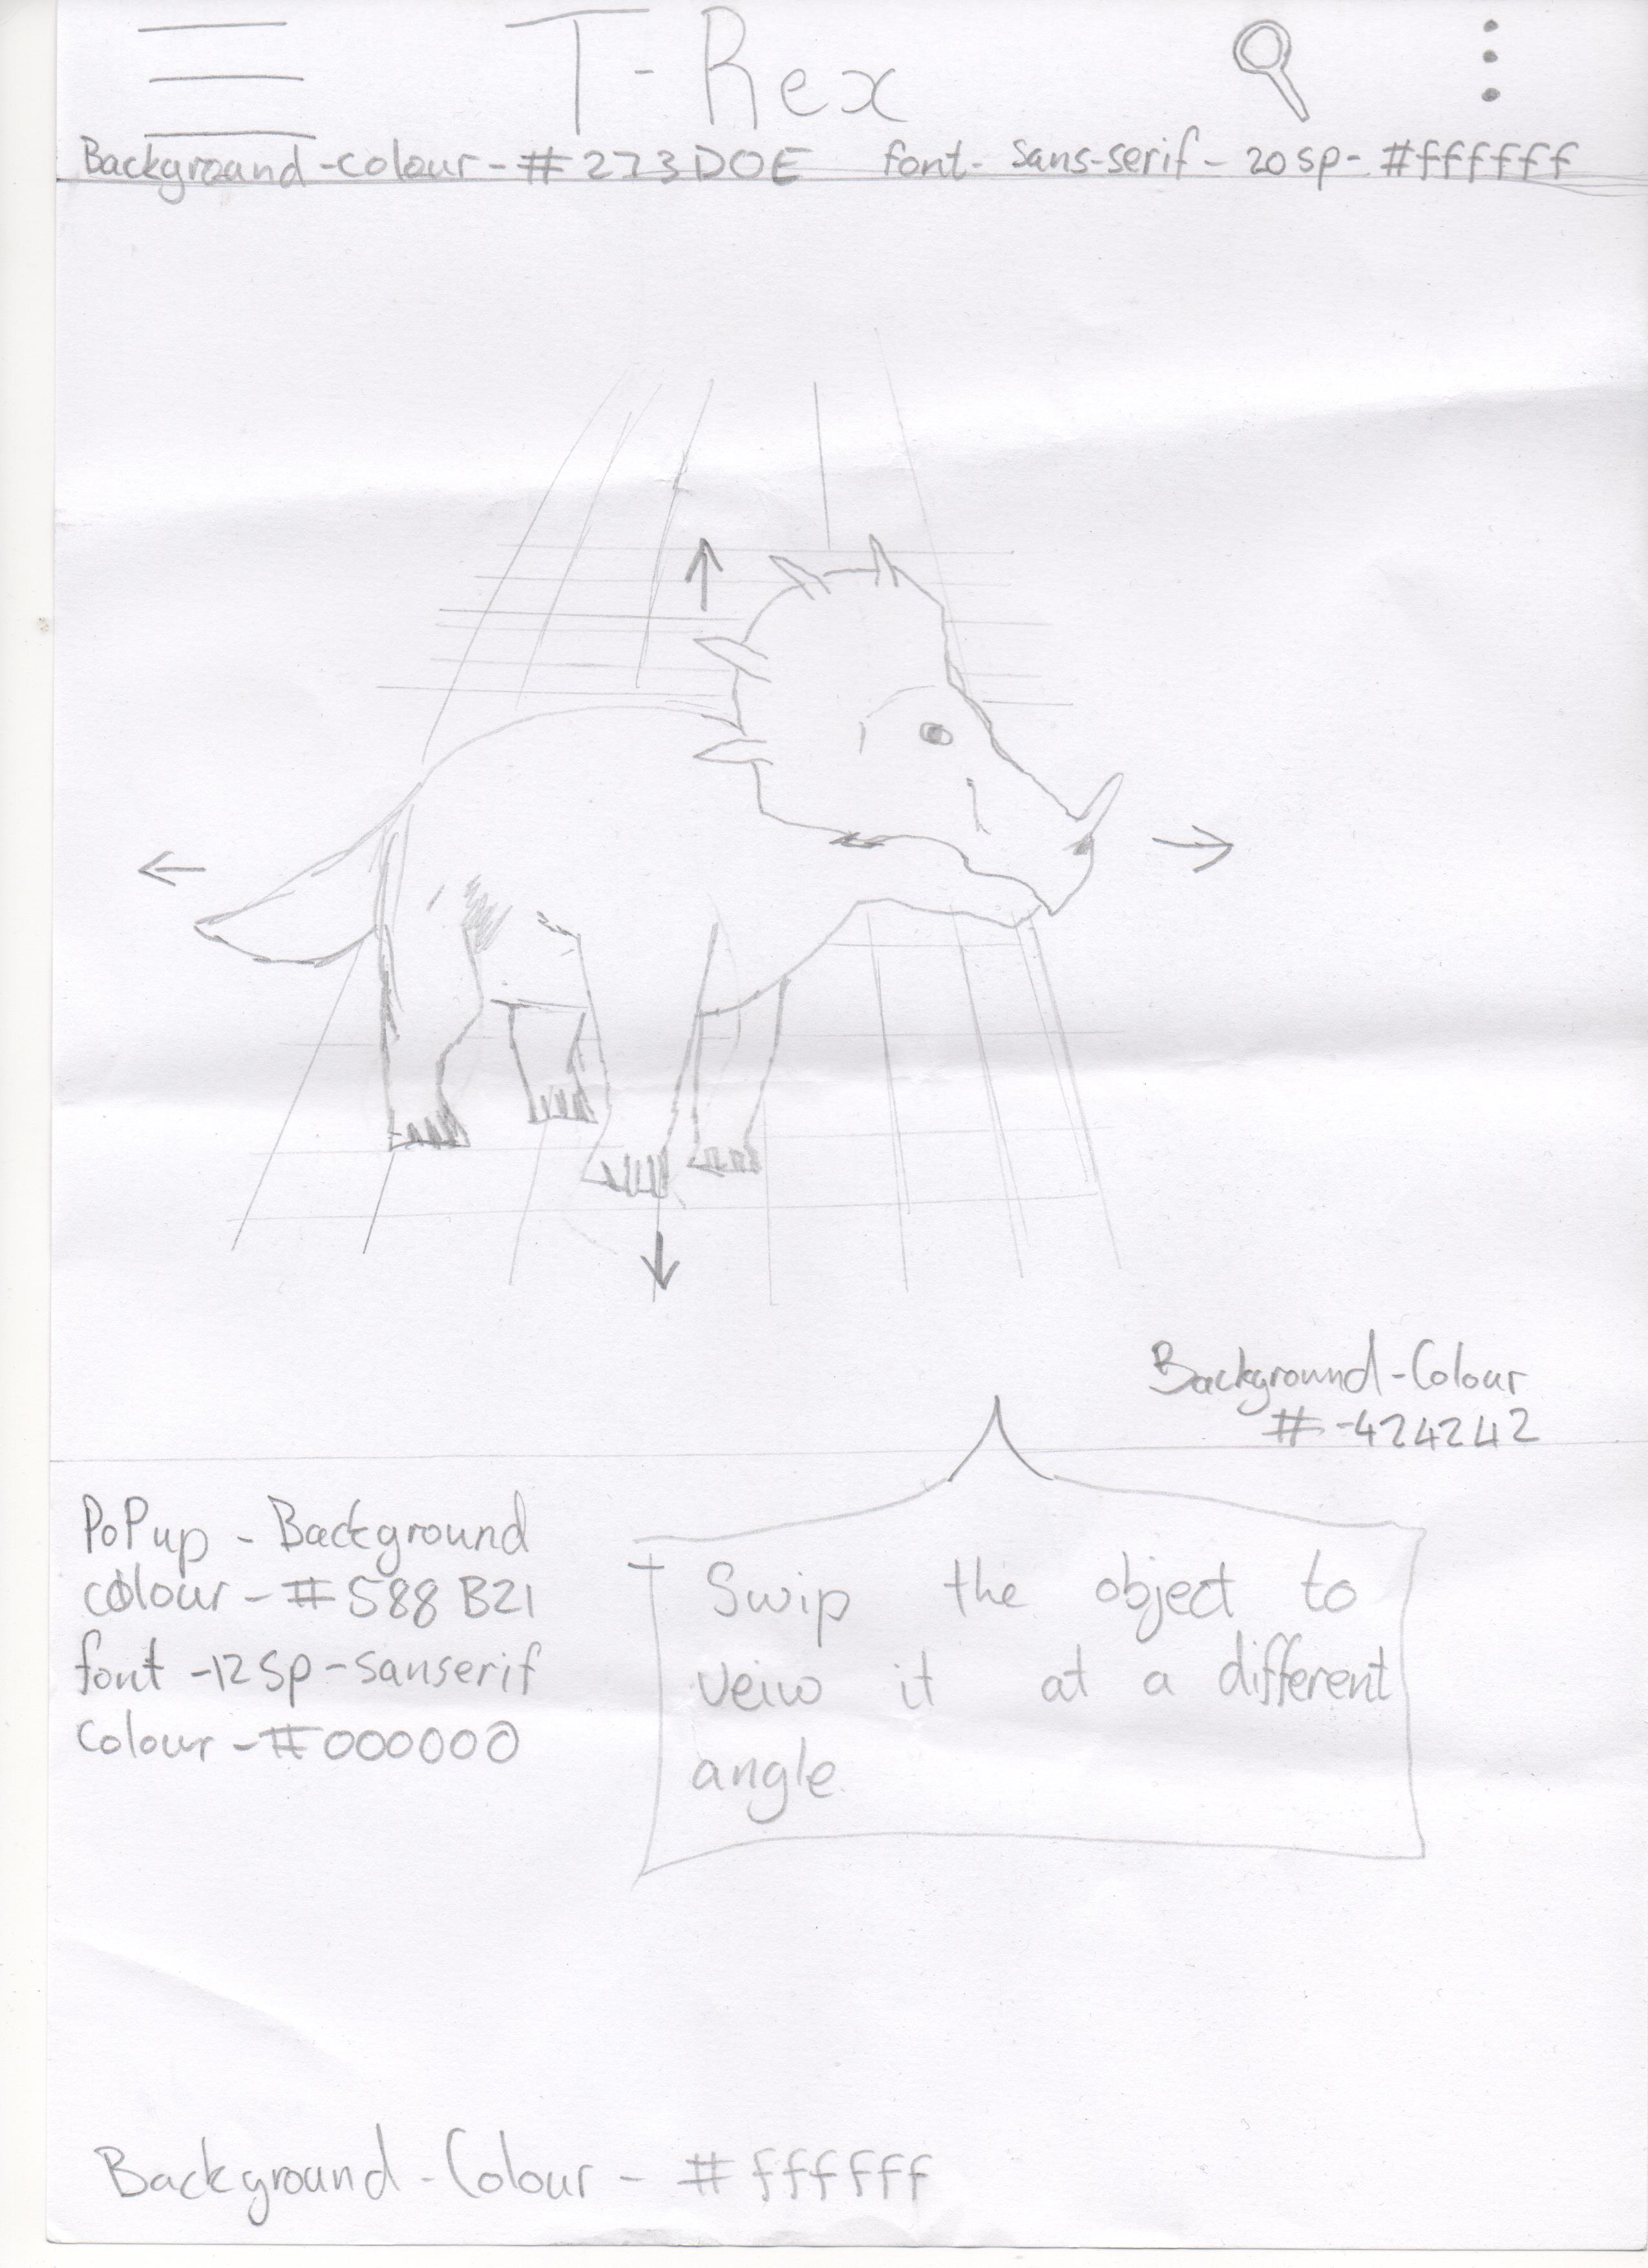 T-Rex
Background-colour-#273D0E font-sans-serif-20sp-#ffffff
Background-Colour
#-424242
PoPup - Background
colour-#588B21
font -12sp-sanserif
colour-#000000
Swip the object to
veiw it at a different
angle
Background-Colour - #ffffff